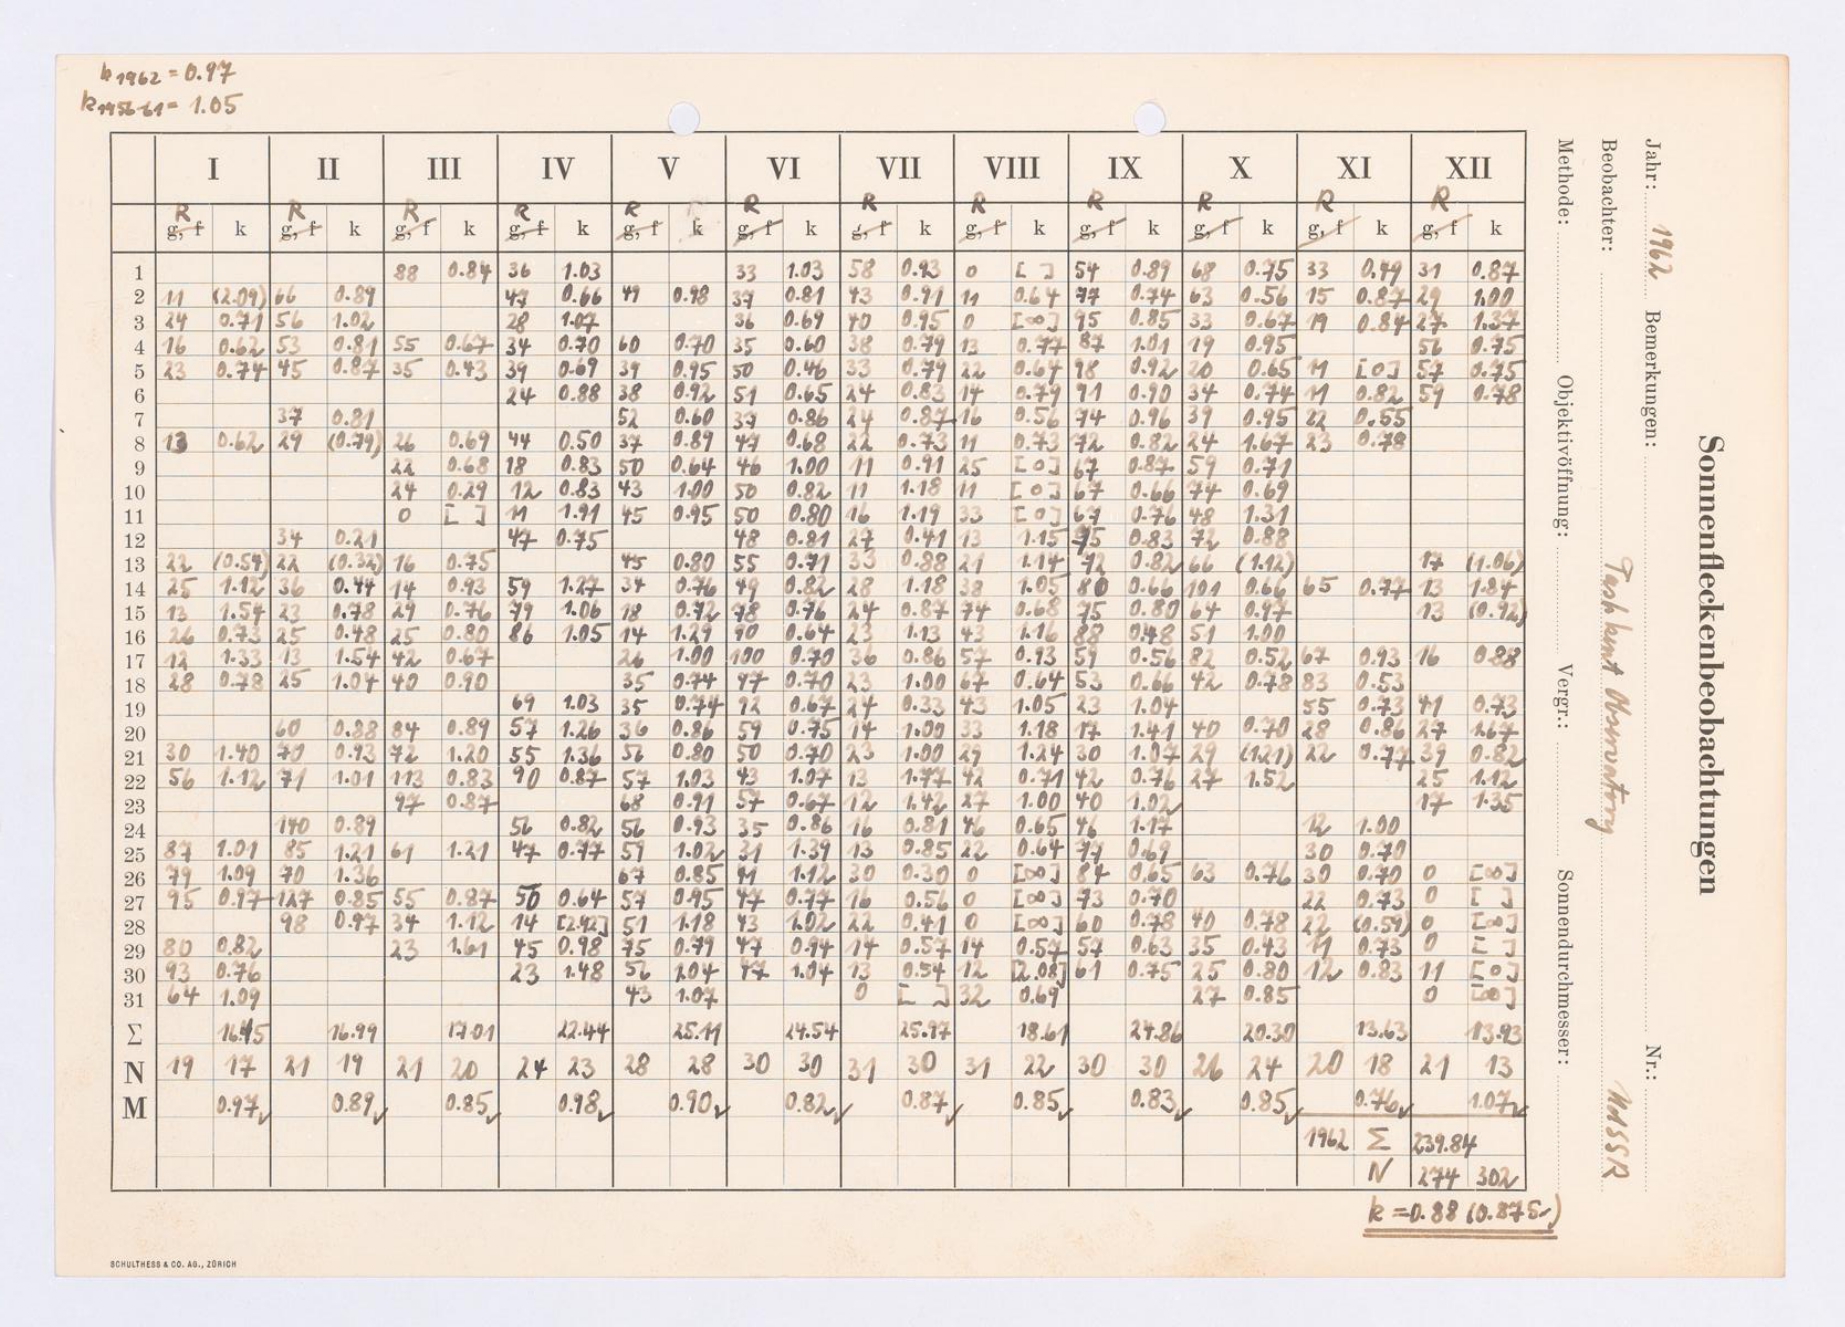 k1962 = 0.97
k1956-61 = 1.05
I II III IV V VI VII VIII IX X XI XII
R R R R R R R R R R R R
g, f k g, f k g, f k g, f k g, f k g, f k g, f k g, f k g, f k g, f k g, f k g, f k
1 88 0.84 36 1.03 33 1.03 58 0.93 0 [ ] 54 0.89 68 0.75 33 0.79 31 0.87
2 11 (2.09) 66 0.89 47 0.66 49 0.98 37 0.81 43 0.91 11 0.64 77 0.74 63 0.56 15 0.87 29 1.00
3 24 0.71 56 1.02 28 1.07 36 0.69 40 0.95 0 [∞] 95 0.85 33 0.67 19 0.84 27 1.37
4 16 0.62 53 0.81 55 0.67 34 0.70 60 0.70 35 0.60 38 0.79 13 0.77 87 1.01 19 0.95 56 0.75
5 23 0.74 45 0.87 35 0.43 39 0.69 39 0.95 50 0.46 33 0.79 22 0.64 98 0.92 20 0.65 11 [0] 57 0.75
6 24 0.88 38 0.92 51 0.65 24 0.83 14 0.79 91 0.90 34 0.74 11 0.82 59 0.78
7 37 0.81 52 0.60 37 0.86 24 0.87 16 0.56 94 0.96 39 0.95 22 0.55
8 13 0.62 29 (0.79) 26 0.69 44 0.50 37 0.89 47 0.68 22 0.73 11 0.73 72 0.82 24 1.67 23 0.78
9 22 0.68 18 0.83 50 0.64 46 1.00 11 0.91 25 [0] 67 0.87 59 0.71
10 24 0.29 12 0.83 43 1.00 50 0.82 11 1.18 11 [0] 67 0.66 74 0.69
11 0 [ ] 11 1.91 45 0.95 50 0.80 16 1.19 33 [0] 67 0.76 48 1.31
12 34 0.21 47 0.75 48 0.81 27 0.41 13 1.15 95 0.83 72 0.88
13 22 (0.54) 22 (0.32) 16 0.75 45 0.80 55 0.71 33 0.88 21 1.14 92 0.82 66 (1.12) 17 (1.06)
14 25 1.12 36 0.44 14 0.93 59 1.27 34 0.76 49 0.82 28 1.18 38 1.05 80 0.66 101 0.66 65 0.77 13 1.84
15 13 1.54 23 0.78 29 0.76 79 1.06 18 0.72 78 0.76 24 0.87 74 0.68 75 0.80 64 0.97 13 (0.92)
16 26 0.73 25 0.48 25 0.80 86 1.05 14 1.29 90 0.64 23 1.13 43 1.16 88 0.48 51 1.00
17 12 1.33 13 1.54 42 0.67 26 1.00 100 0.70 36 0.86 57 0.93 59 0.56 82 0.52 67 0.93 16 0.88
18 28 0.78 25 1.04 40 0.90 35 0.74 97 0.70 23 1.00 67 0.64 53 0.66 42 0.78 83 0.53
19 69 1.03 35 0.74 92 0.67 24 0.33 43 1.05 23 1.04 55 0.73 41 0.73
20 60 0.88 84 0.89 57 1.26 36 0.86 59 0.75 14 1.00 33 1.18 17 1.41 40 0.70 28 0.86 27 1.67
21 30 1.40 70 0.93 72 1.20 55 1.36 56 0.80 50 0.70 23 1.00 29 1.24 30 1.07 29 (1.21) 22 0.77 39 0.82
22 56 1.12 71 1.01 113 0.83 90 0.87 57 1.03 43 1.07 13 1.77 42 0.71 42 0.76 27 1.52 25 1.12
23 97 0.87 68 0.91 57 0.67 12 1.42 27 1.00 40 1.02 17 1.35
24 140 0.89 56 0.82 56 0.93 35 0.86 16 0.81 46 0.65 46 1.17 12 1.00
25 87 1.01 85 1.21 61 1.21 47 0.77 59 1.02 31 1.39 13 0.85 22 0.64 77 0.69 30 0.70
26 79 1.09 70 1.36 67 0.85 41 1.12 30 0.30 0 [∞] 84 0.65 63 0.76 30 0.70 0 [∞]
27 95 0.97 127 0.85 55 0.87 50 0.64 57 0.95 47 0.77 16 0.56 0 [∞] 73 0.70 22 0.73 0 [ ]
28 98 0.97 34 1.12 14 [2.42] 51 1.18 43 1.02 22 0.41 0 [∞] 60 0.78 40 0.78 22 (0.59) 0 [∞]
29 80 0.82 23 1.61 45 0.98 75 0.79 47 0.94 14 0.57 14 0.57 57 0.63 35 0.43 11 0.73 0 [ ]
30 93 0.76 23 1.48 56 1.04 47 1.04 13 0.54 12 [2.08] 61 0.75 25 0.80 12 0.83 11 [0]
31 64 1.09 43 1.07 0 [ ] 32 0.69 27 0.85 0 [∞]
Σ 16.45 16.99 17.01 22.44 25.11 24.54 25.97 18.61 24.86 20.30 13.63 13.93
N 19 17 21 19 21 20 24 23 28 28 30 30 31 30 31 22 30 30 26 24 20 18 21 13
M 0.97 0.89 0.85 0.98 0.90 0.82 0.87 0.85 0.83 0.85 0.76 1.07
1962 Σ 239.84
N 274 302
k = 0.88 (0.875)
SCHULTHESS & CO. AG., ZÜRICH
Sonnenfleckenbeobachtungen
Jahr: 1962 Bemerkungen: Nr.:
Beobachter: Tashkent Observatory UdSSR
Methode: Objektivöffnung: Vergr.: Sonnendurchmesser: